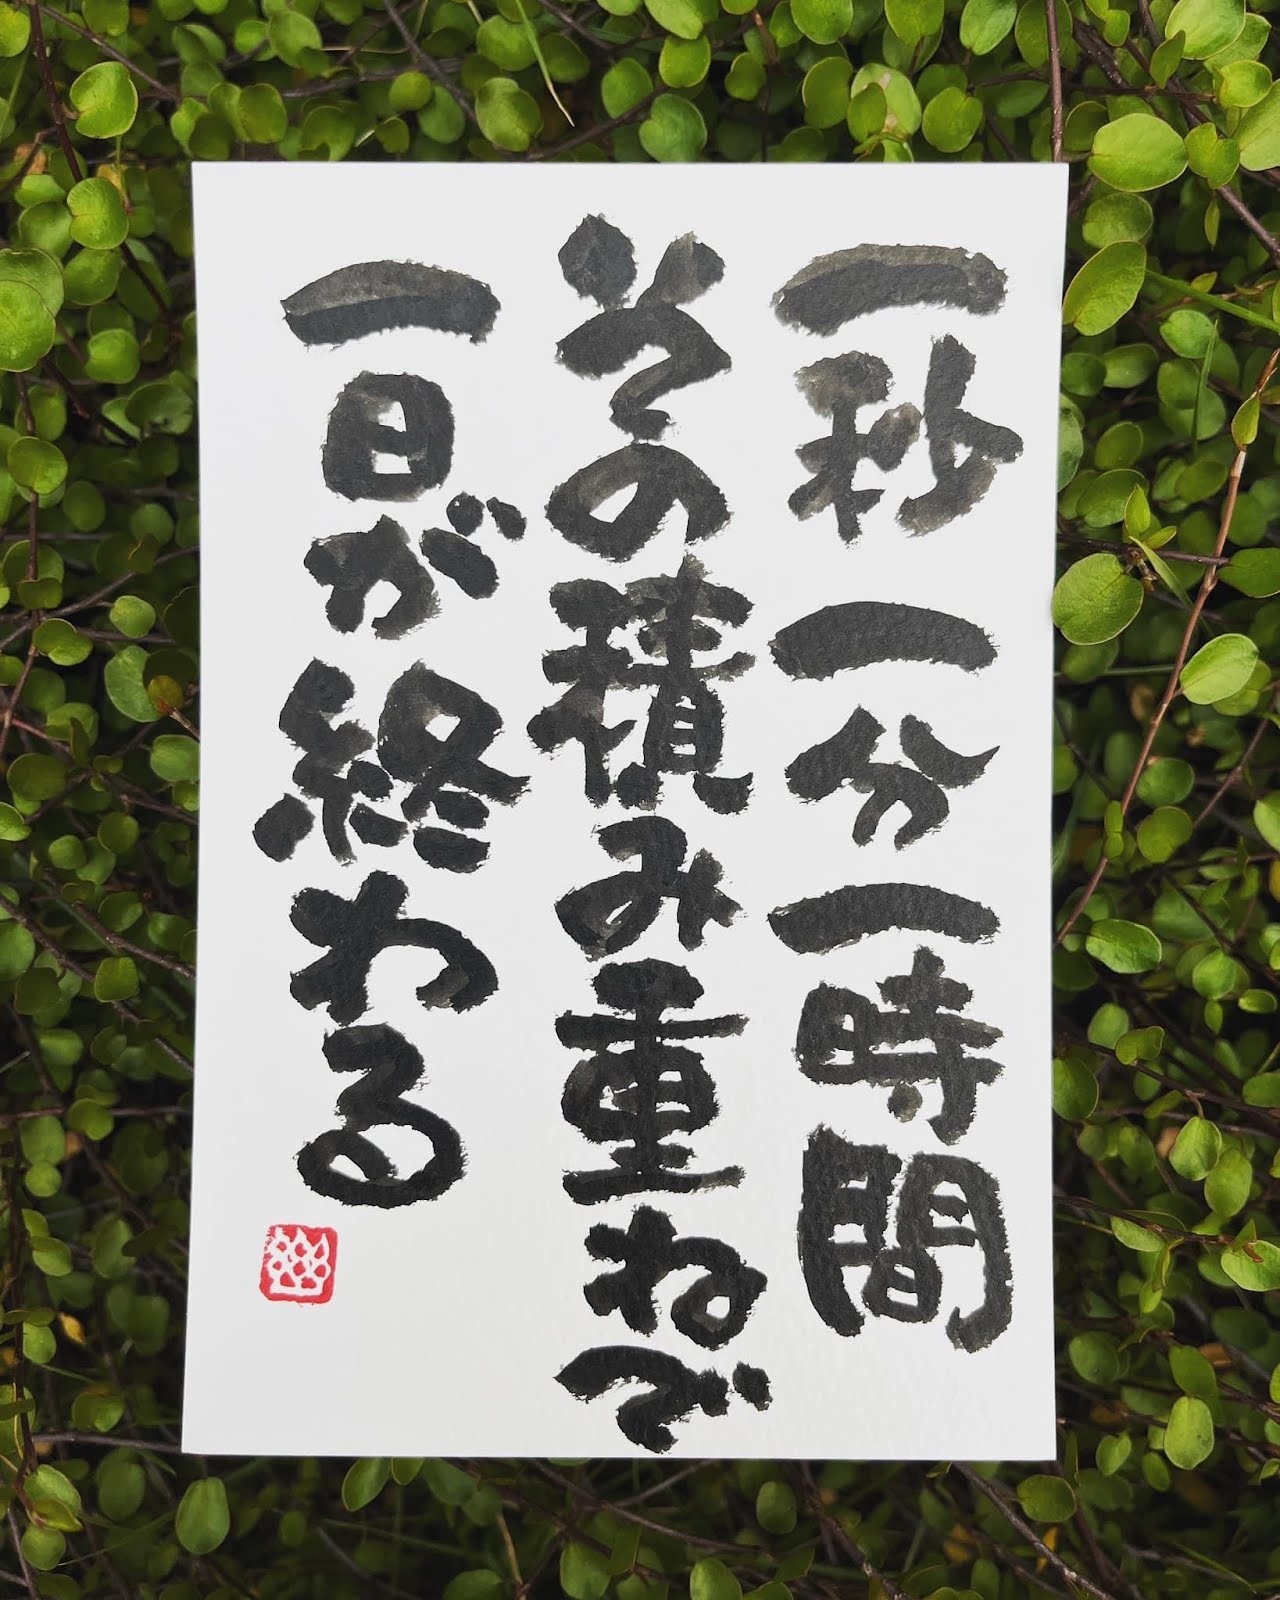 一秒一分一時間
その積み重ねで
一日が終わる